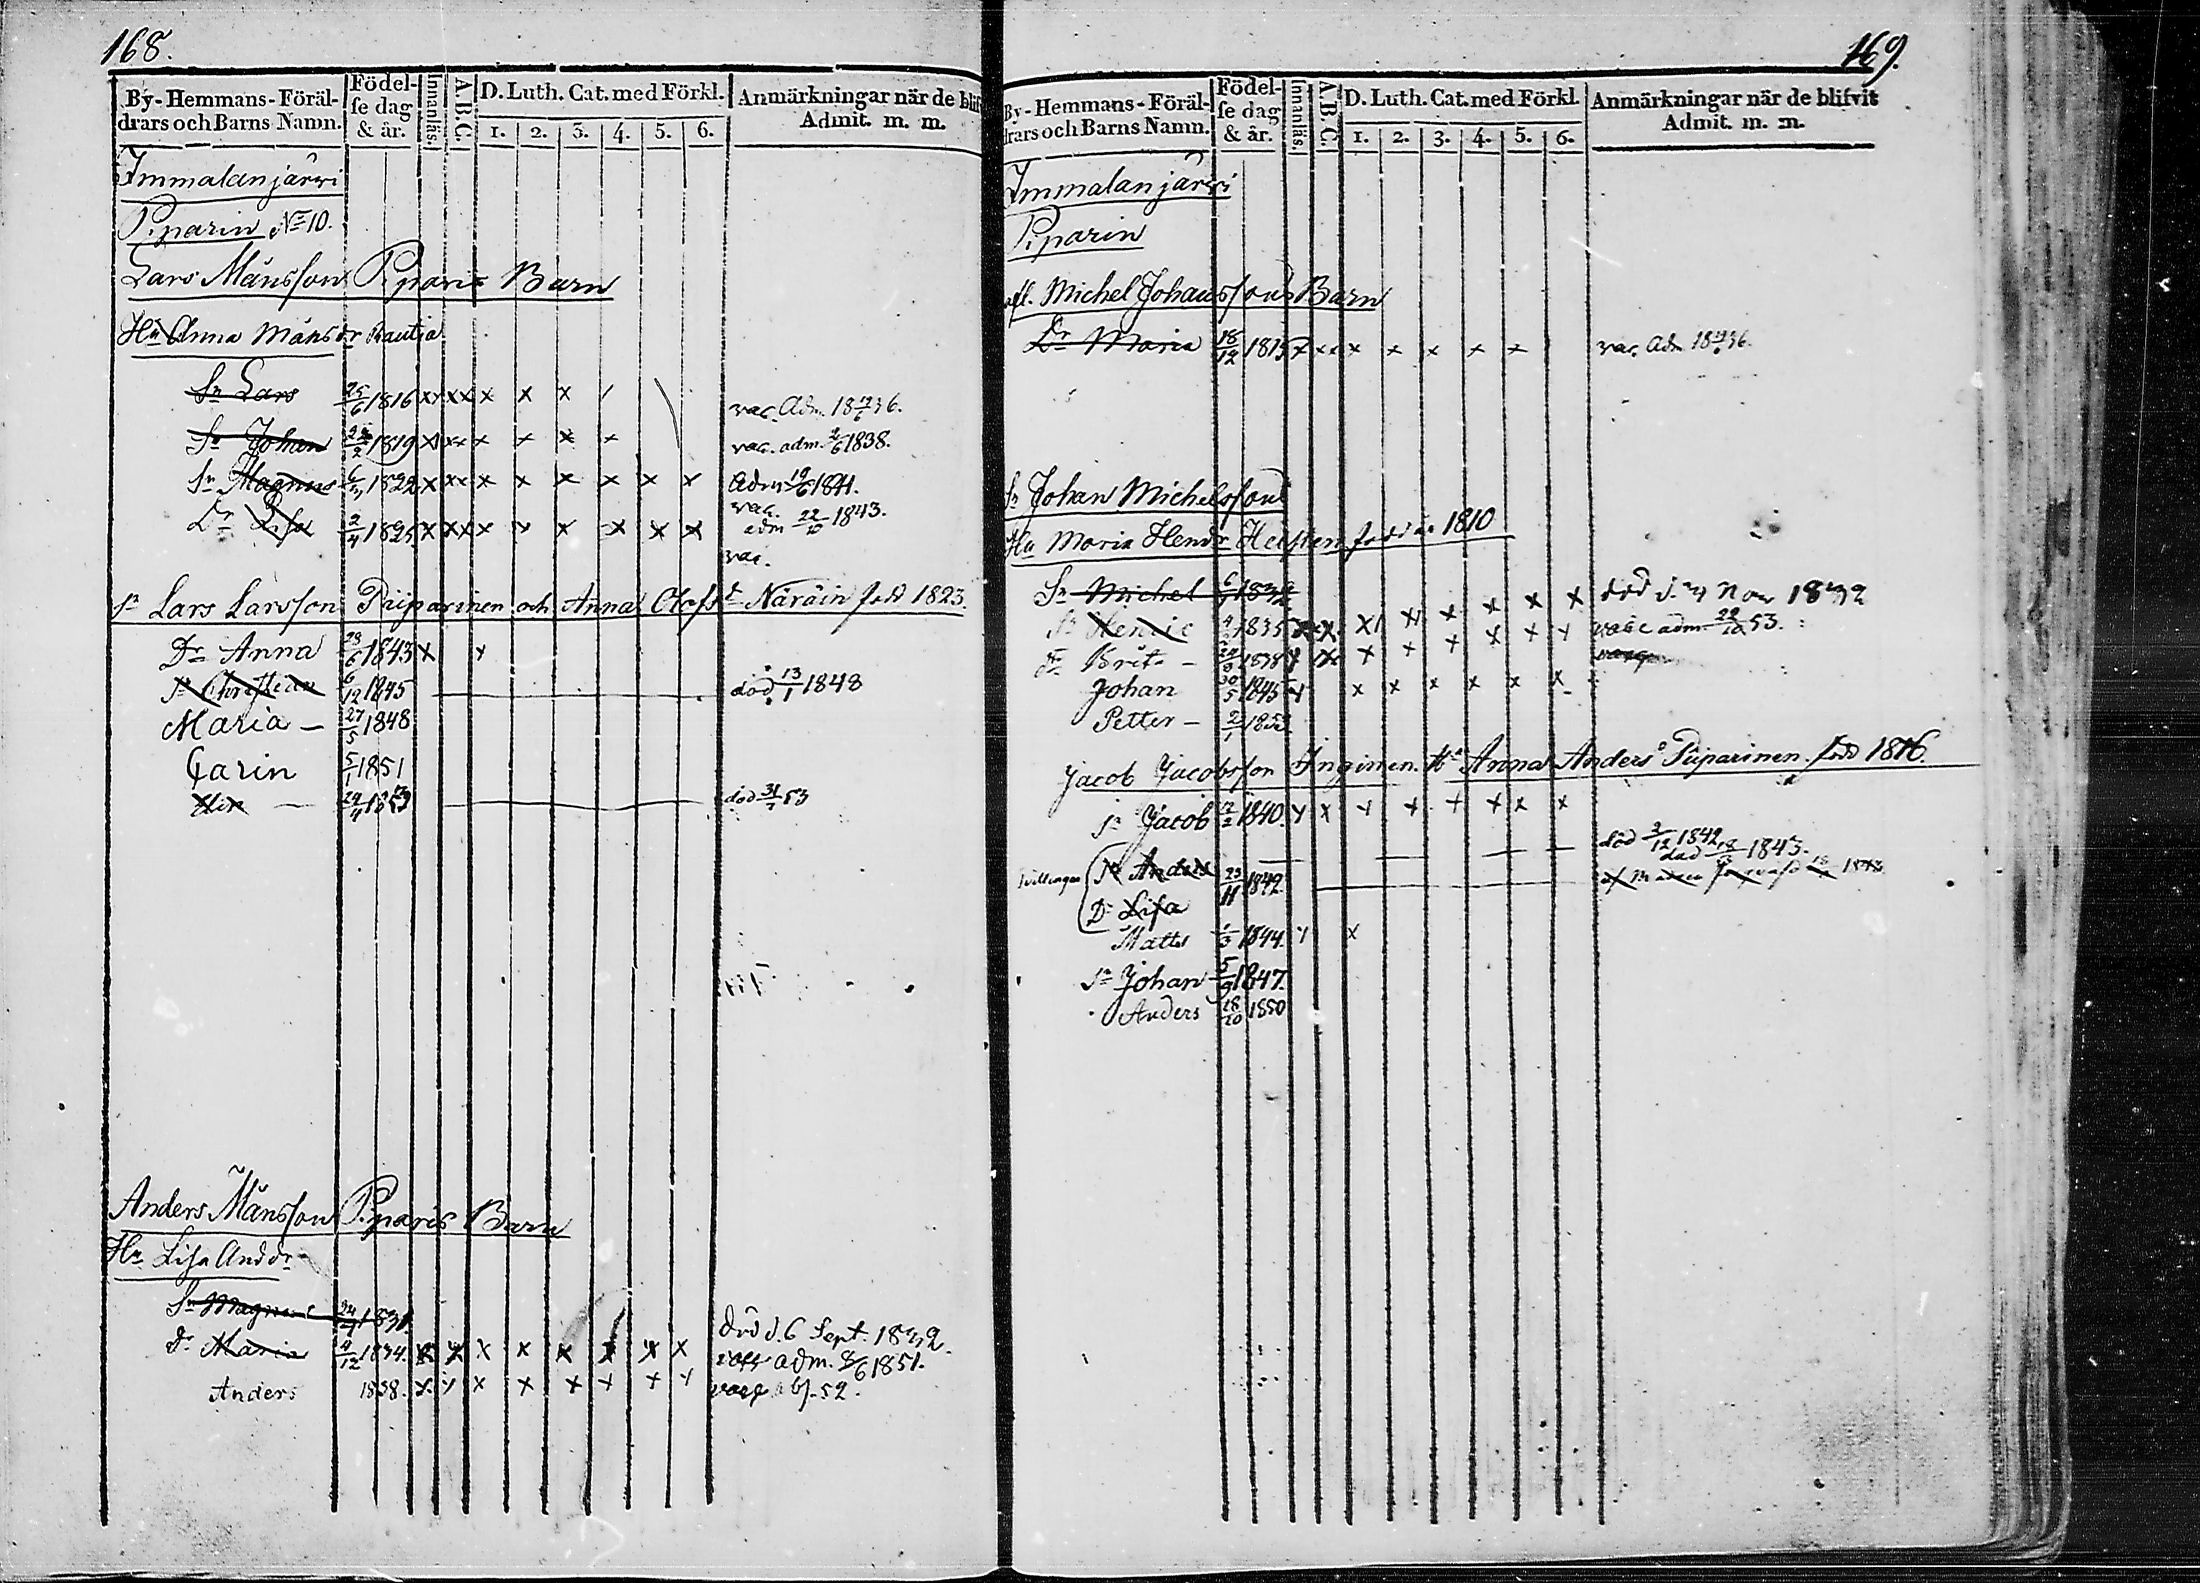 168.
By-Hemmans-Föräl-
drars och Barns Namn.
Födel-
se dag
& år.
Innanläs.
A.B.C.
D. Luth. Cat. med Förkl.
1. 2. 3. 4. 5. 6.
Anmärkningar när de blif
Admit. m. m.
Immalanjärwi
Piparin No 10.
Lars Månsson Piparis Barn
Hu Anna Månsdr Rautia
Sn Lars 25/6 1816 xx xx x x x / vac. Adm. 18 /6 36.
Sn Johan 22/2 1819 x xx x x x x vac. adm. 2/6 1838.
Sn Magnus 1822 x xx x x x x x x Adm 19/6 1841.
vac.
Dr Lisa 2/4 1825 x xx x x x x x x adm 22/10 1843.
vac.
Sn Lars Larsson Piiparinen och Anna Olofsd Näräin född 1823.
Dr Anna 23/6 1843 x x
Sn Christian 6/12 1845 död 13/1 1848
Maria – 27/5 1848
Carin 5/1 1851
Elin – 29/4 1853 död 31/7 53
Anders Månsson Piparis Barn
Hu Lisa Anddr
Sn Magnus 24/7 1831 död d. 6 Sept. 1832.
Dr Maria 4/12 1834. x x x x x x x x adm. 8/6 1851.
Anders 1838. x x x x x x x x abs. 52.
169.
By-Hemmans-Föräl-
drars och Barns Namn.
Födel-
se dag
& år.
Innanläs.
A.B.C.
D. Luth. Cat. med Förkl.
1. 2. 3. 4. 5. 6.
Anmärkningar när de blifvit
Admit. m. m.
Immalanjärwi
Piparin
afl. Michel Johanssons Barn
Dr Maria 18/12 1815 x xx x x x x x vac. Adm 18 36.
Sn Johan Michelsson
Hu Maria Hendr Heisken född år 1810
Sn Michel 1832 död d. Nov 1832
Sn Henric 1835 adm. 22/10 53.
Dr Brita – 1838
Johan 30/5 1845 x x x x x x x
Petter – 2/1 1852
Jacob Jacobsson Inginen. Hu Anna Andersd Piiparinen. född 1816.
Sn Jacob 12/2 1840. x x x x x x x x
Tvillingar
Sn Anders 23/11 1842 död 3/12 1842
Dr Lisa död 1843.
Matts 1/3 1844. x x
Sn Johan 5/9 1847.
Anders 28/10 1850